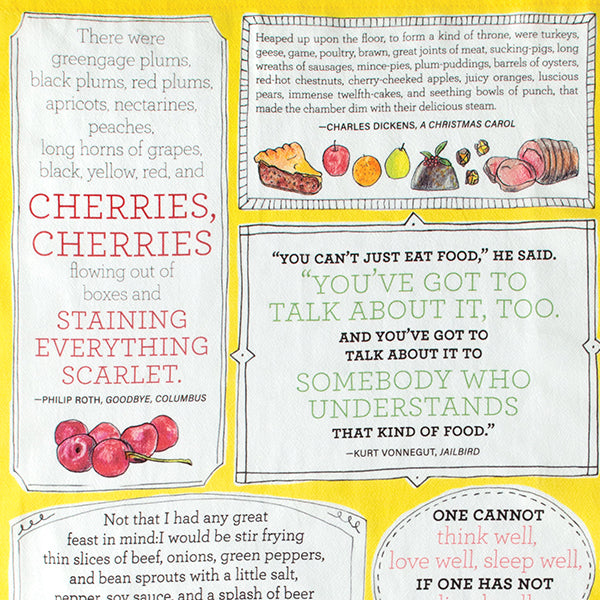 There were
greengage plums,
black plums, red plums,
apricots, nectarines,
peaches,
long horns of grapes,
black, yellow, red, and
CHERRIES,
CHERRIES
flowing out of
boxes and
STAINING
EVERYTHING
SCARLET.
—PHILIP ROTH, GOODBYE, COLUMBUS
Heaped up upon the floor, to form a kind of throne, were turkeys,
geese, game, poultry, brawn, great joints of meat, sucking-pigs, long
wreaths of sausages, mince-pies, plum-puddings, barrels of oysters,
red-hot chestnuts, cherry-cheeked apples, juicy oranges, luscious
pears, immense twelfth-cakes, and seething bowls of punch, that
made the chamber dim with their delicious steam.
—CHARLES DICKENS, A CHRISTMAS CAROL
“YOU CAN’T JUST EAT FOOD,” HE SAID.
“YOU’VE GOT TO
TALK ABOUT IT, TOO.
AND YOU’VE GOT TO
TALK ABOUT IT TO
SOMEBODY WHO
UNDERSTANDS
THAT KIND OF FOOD.”
—KURT VONNEGUT, JAILBIRD
Not that I had any great
feast in mind:I would be stir frying
thin slices of beef, onions, green peppers,
and bean sprouts with a little salt,
pepper, soy sauce, and a splash of beer
ONE CANNOT
think well,
love well, sleep well,
IF ONE HAS NOT